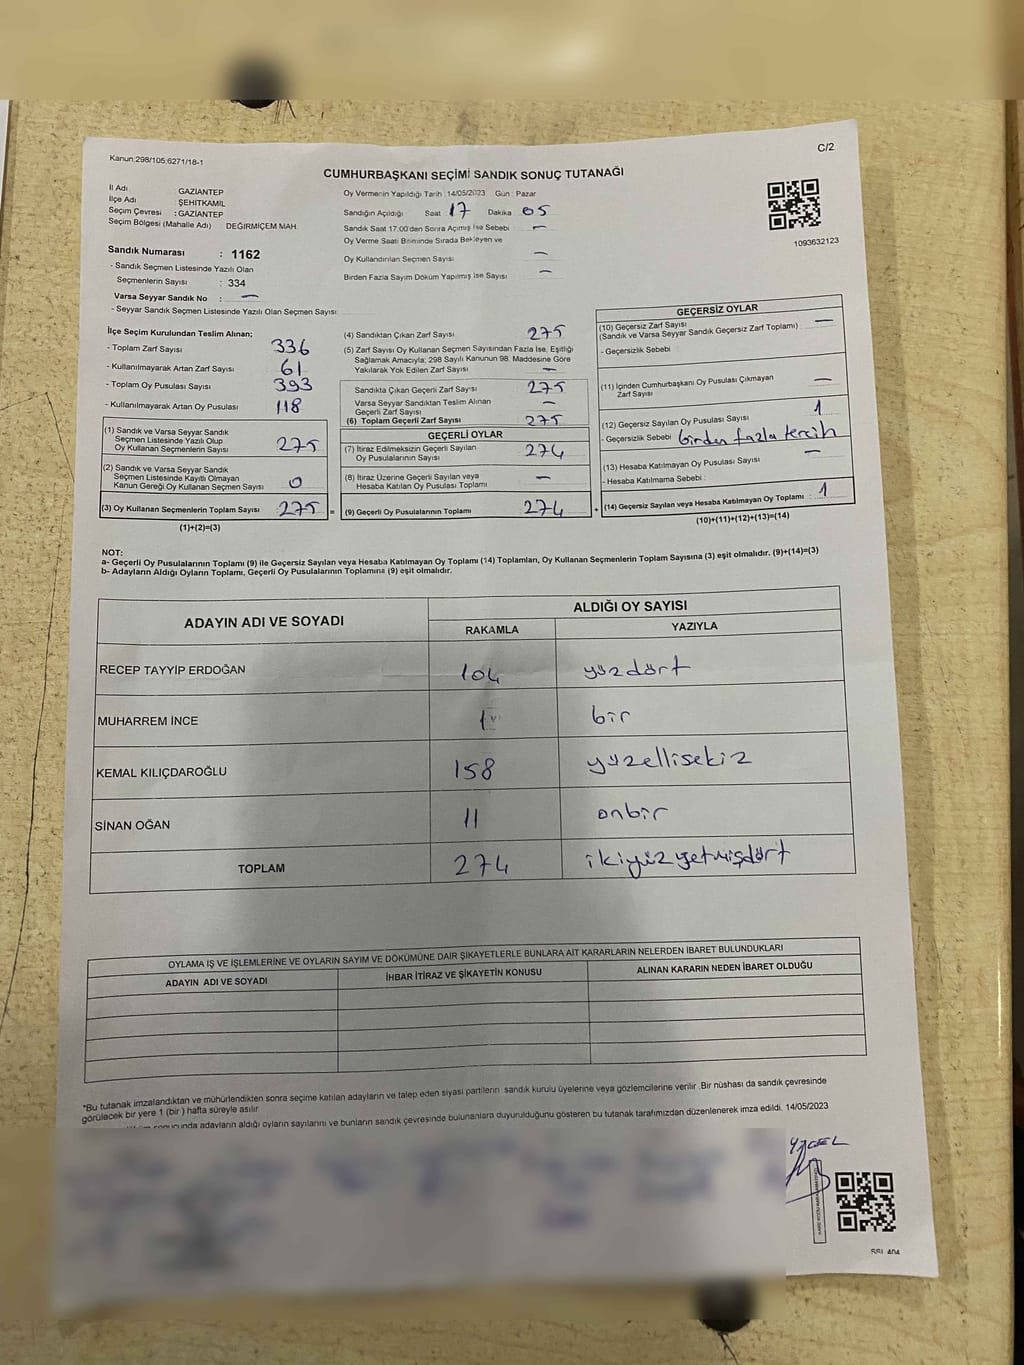 Kanun:298/105:6271/18-1
C/2
CUMHURBAŞKANI SEÇİMİ SANDIK SONUÇ TUTANAĞI
İl Adı GAZİANTEP
İlçe Adı ŞEHİTKAMİL
Seçim Çevresi : GAZİANTEP
Seçim Bölgesi (Mahalle Adı) DEĞİRMİÇEM MAH.
Oy Vermenin Yapıldığı Tarih : 14/05/2023 Gün : Pazar
Sandığın Açıldığı Saat 17 Dakika 05
Sandık Saat 17:00'den Sonra Açılmış İse Sebebi : —
Oy Verme Saati Bitiminde Sırada Bekleyen ve
Oy Kullandırılan Seçmen Sayısı : —
Birden Fazla Sayım Döküm Yapılmış İse Sayısı : —
1093632123
Sandık Numarası : 1162
- Sandık Seçmen Listesinde Yazılı Olan
Seçmenlerin Sayısı : 334
Varsa Seyyar Sandık No : —
- Seyyar Sandık Seçmen Listesinde Yazılı Olan Seçmen Sayısı
İlçe Seçim Kurulundan Teslim Alınan;
- Toplam Zarf Sayısı 336
- Kullanılmayarak Artan Zarf Sayısı 61
- Toplam Oy Pusulası Sayısı 393
- Kullanılmayarak Artan Oy Pusulası 118
(1) Sandık ve Varsa Seyyar Sandık
Seçmen Listesinde Yazılı Olup
Oy Kullanan Seçmenlerin Sayısı 275
(2) Sandık ve Varsa Seyyar Sandık
Seçmen Listesinde Kayıtlı Olmayan
Kanun Gereği Oy Kullanan Seçmen Sayısı 0
(3) Oy Kullanan Seçmenlerin Toplam Sayısı 275 =
(1)+(2)=(3)
(4) Sandıktan Çıkan Zarf Sayısı 275
(5) Zarf Sayısı Oy Kullanan Seçmen Sayısından Fazla İse, Eşitliği
Sağlamak Amacıyla; 298 Sayılı Kanunun 98. Maddesine Göre
Yakılarak Yok Edilen Zarf Sayısı —
Sandıkta Çıkan Geçerli Zarf Sayısı 275
Varsa Seyyar Sandıktan Teslim Alınan
Geçerli Zarf Sayısı —
(6) Toplam Geçerli Zarf Sayısı 275
GEÇERLİ OYLAR
(7) İtiraz Edilmeksizin Geçerli Sayılan
Oy Pusulalarının Sayısı 274
(8) İtiraz Üzerine Geçerli Sayılan veya
Hesaba Katılan Oy Pusulası Toplamı —
(9) Geçerli Oy Pusulalarının Toplamı 274 +
GEÇERSİZ OYLAR
(10) Geçersiz Zarf Sayısı —
(Sandık ve Varsa Seyyar Sandık Geçersiz Zarf Toplamı)
- Geçersizlik Sebebi :
(11) İçinden Cumhurbaşkanı Oy Pusulası Çıkmayan
Zarf Sayısı —
(12) Geçersiz Sayılan Oy Pusulası Sayısı 1
- Geçersizlik Sebebi : birden fazla tercih
(13) Hesaba Katılmayan Oy Pusulası Sayısı —
- Hesaba Katılmama Sebebi :
(14) Geçersiz Sayılan veya Hesaba Katılmayan Oy Toplamı : 1
(10)+(11)+(12)+(13)=(14)
NOT:
a- Geçerli Oy Pusulalarının Toplamı (9) ile Geçersiz Sayılan veya Hesaba Katılmayan Oy Toplamı (14) Toplamları, Oy Kullanan Seçmenlerin Toplam Sayısına (3) eşit olmalıdır. (9)+(14)=(3)
b- Adayların Aldığı Oyların Toplamı, Geçerli Oy Pusulalarının Toplamına (9) eşit olmalıdır.
ADAYIN ADI VE SOYADI ALDIĞI OY SAYISI
RAKAMLA YAZIYLA
RECEP TAYYİP ERDOĞAN 104 yüzdört
MUHARREM İNCE 1 bir
KEMAL KILIÇDAROĞLU 158 yüzellisekiz
SİNAN OĞAN 11 onbir
TOPLAM 274 ikiyüzyetmişdört
OYLAMA İŞ VE İŞLEMLERİNE VE OYLARIN SAYIM VE DÖKÜMÜNE DAİR ŞİKAYETLERLE BUNLARA AİT KARARLARIN NELERDEN İBARET BULUNDUKLARI
ADAYIN ADI VE SOYADI İHBAR İTİRAZ VE ŞİKAYETİN KONUSU ALINAN KARARIN NEDEN İBARET OLDUĞU
*Bu tutanak imzalandıktan ve mühürlendikten sonra seçime katılan adayların ve talep eden siyasi partilerin sandık kurulu üyelerine veya gözlemcilerine verilir. Bir nüshası da sandık çevresinde
görülecek bir yere 1 (bir) hafta süreyle asılır.
adayların aldığı oyların sayılarını ve bunların sandık çevresinde bulunanlara duyurulduğunu gösteren bu tutanak tarafımızdan düzenlenerek imza edildi. 14/05/2023